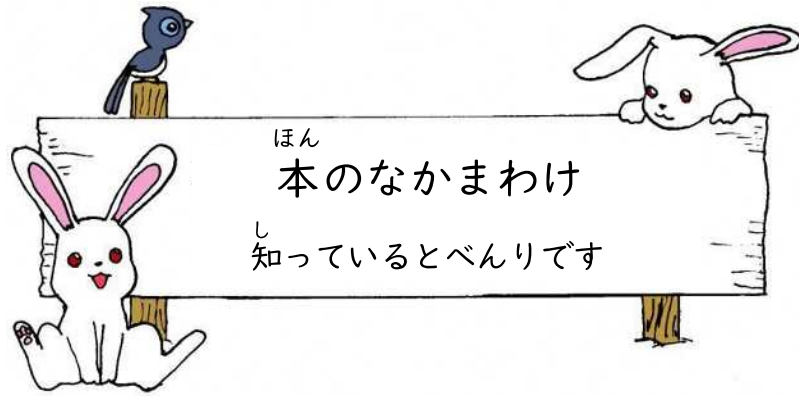 ほん
本のなかまわけ
し
知っているとべんりです